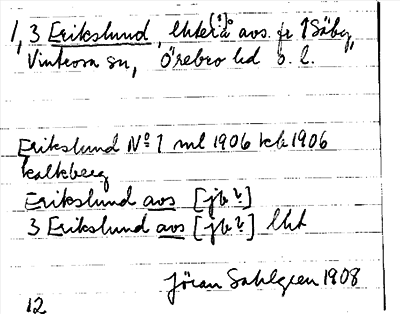 1, 3 Erikslund, lhter [?] å avs. fr ↑Säby,
Vintrosa sn, Örebro hd ö. l.
Erikslund No 1 ml 1906 kek 1906
kalkberg
Erikslund avs [jb?]
3 Erikslund avs [jb?] lht
Jöran Sahlgren 1908
12